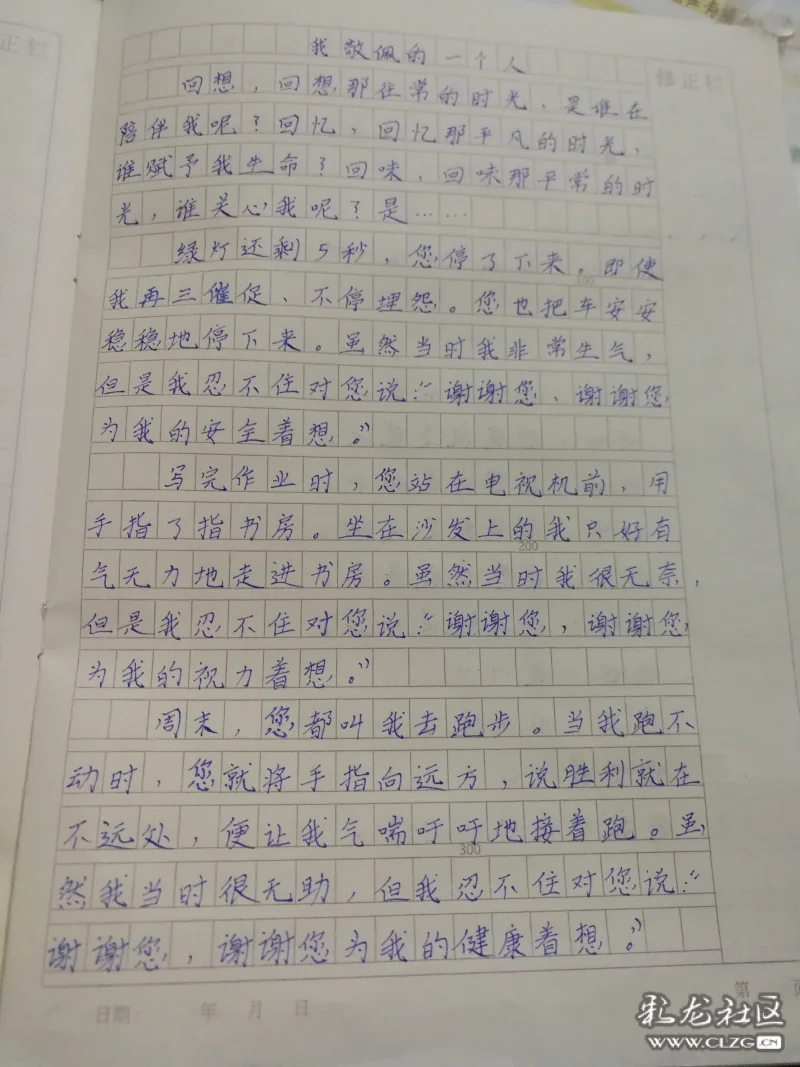 我敬佩的一个人
修正栏
正栏
回想，回想那往常的时光，是谁在
陪伴我呢？回忆，回忆那平凡的时光，
谁赋予我生命？回味，回味那平常的时
光，谁关心我呢？是……
绿灯还剩5秒，您停了下来。即使
100
我再三催促、不停埋怨。您也把车安安
稳稳地停下来。虽然当时我非常生气，
但是我忍不住对您说：“谢谢您、谢谢您
为我的安全着想。”
写完作业时，您站在电视机前，用
手指了指书房。坐在沙发上的我只好有
200
气无力地走进书房。虽然当时我很无奈，
但是我忍不住对您说：“谢谢您，谢谢您
为我的视力着想。”
周末，您都叫我去跑步。当我跑不
动时，您就将手指向远方，说胜利就在
不远处，便让我气喘吁吁地接着跑。虽
300
然我当时很无助，但我忍不住对您说：“
谢谢您，谢谢您为我的健康着想。”
日期： 年 月 日
第 页
乳龙社区
WWW.CLZG.CN